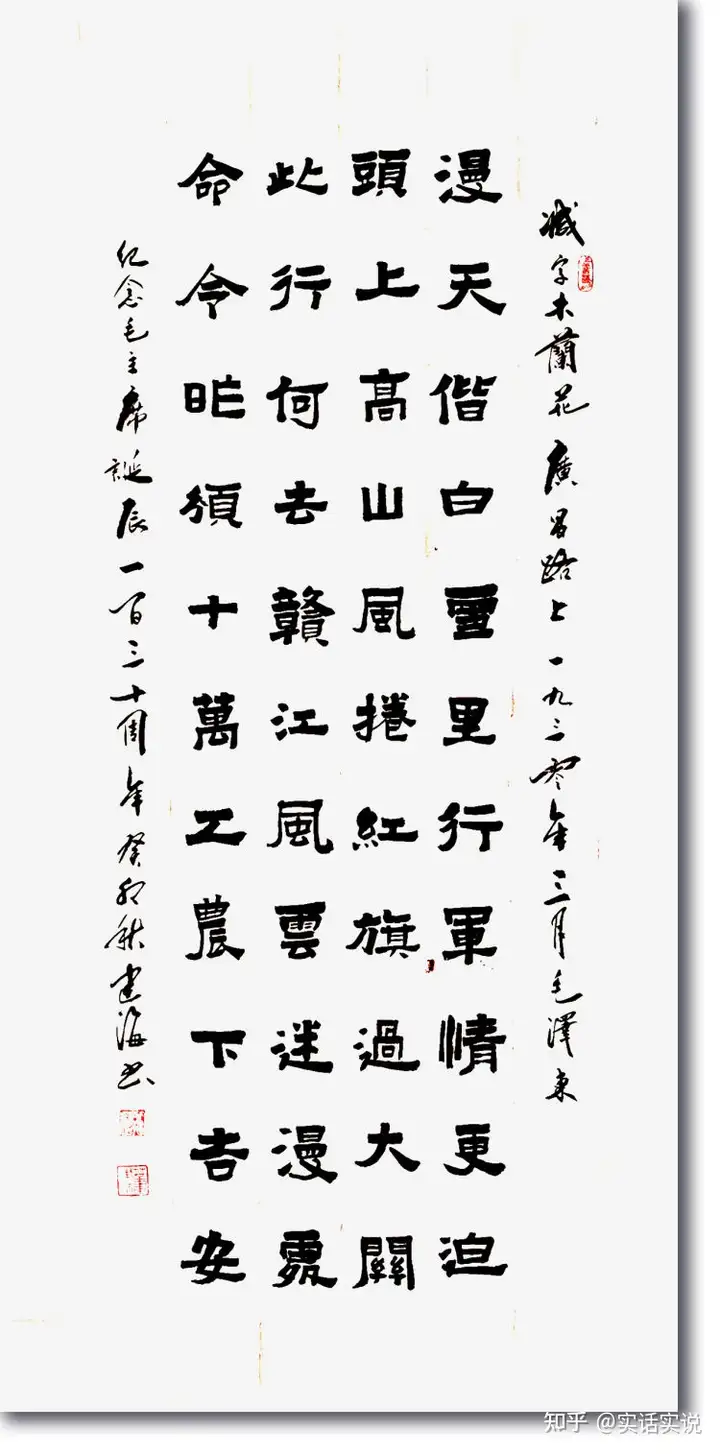 減字木蘭花 廣昌路上 一九三零年三月毛澤東
漫天偕白雪里行軍情更迫
頭上高山風捲紅旗過大關
此行何去贛江風雲迷漫處
命令昨頒十萬工農下吉安
紀念毛主席誕辰一百三十周年癸卯秋建海书
知乎 @实话实说